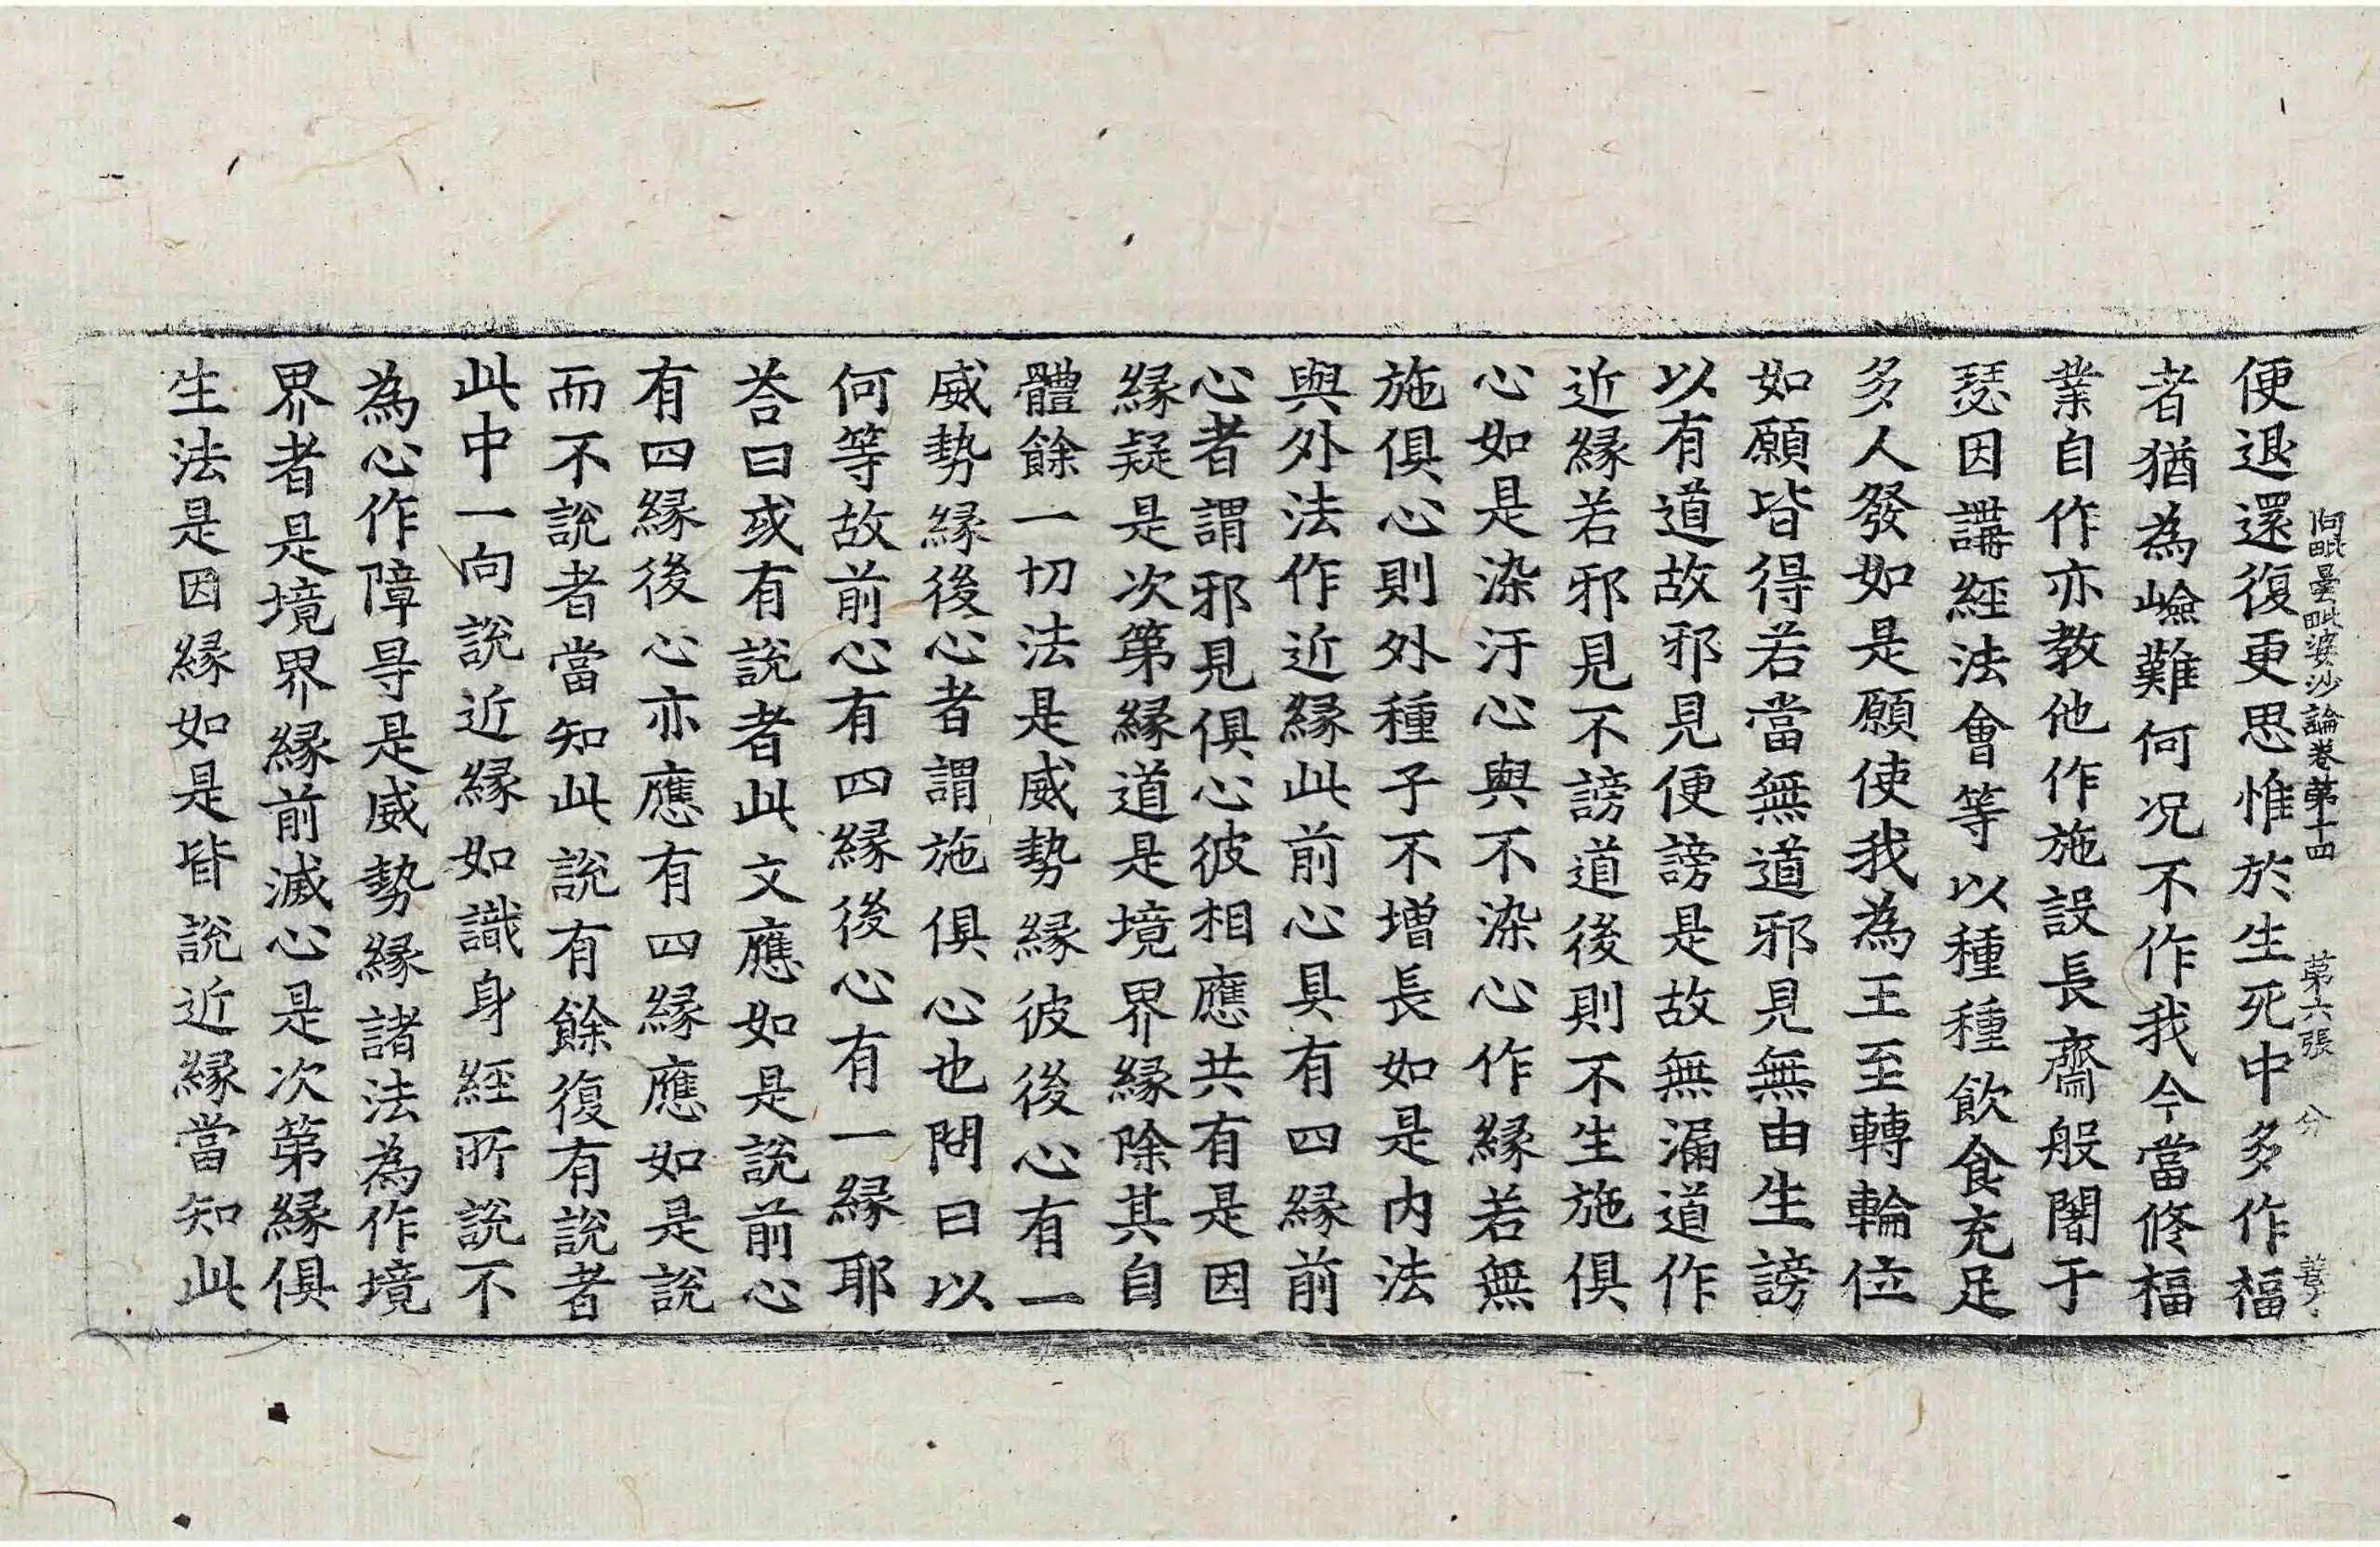 阿毗曇毗婆沙論卷第十四 第六張 分
便退還復更思惟於生死中多作福
者猶為嶮難何況不作我今當修福
業自作亦教他作施設長齋般闍于
瑟因講經法會等以種種飲食充足
多人發如是願使我為王至轉輪位
如願皆得若當無道邪見無由生謗
以有道故邪見便謗是故無漏道作
近緣若邪見不謗道後則不生施俱
心如是染汙心與不染心作緣若無
施俱心則外種子不增長如是内法
與外法作近緣此前心具有四緣前
心者謂邪見俱心彼相應共有是因
緣疑是次第緣道是境界緣除其自
體餘一切法是威勢緣彼後心有一
威勢緣後心者謂施俱心也問曰以
何等故前心有四緣後心有一緣耶
荅曰或有說者此文應如是說前心
有四緣後心亦應有四緣應如是說
而不說者當知此說有餘復有說者
此中一向說近緣如識身經所說不
為心作障㝵是威勢緣諸法為作境
界者是境界緣前滅心是次第緣俱
生法是因緣如是皆說近緣當知此